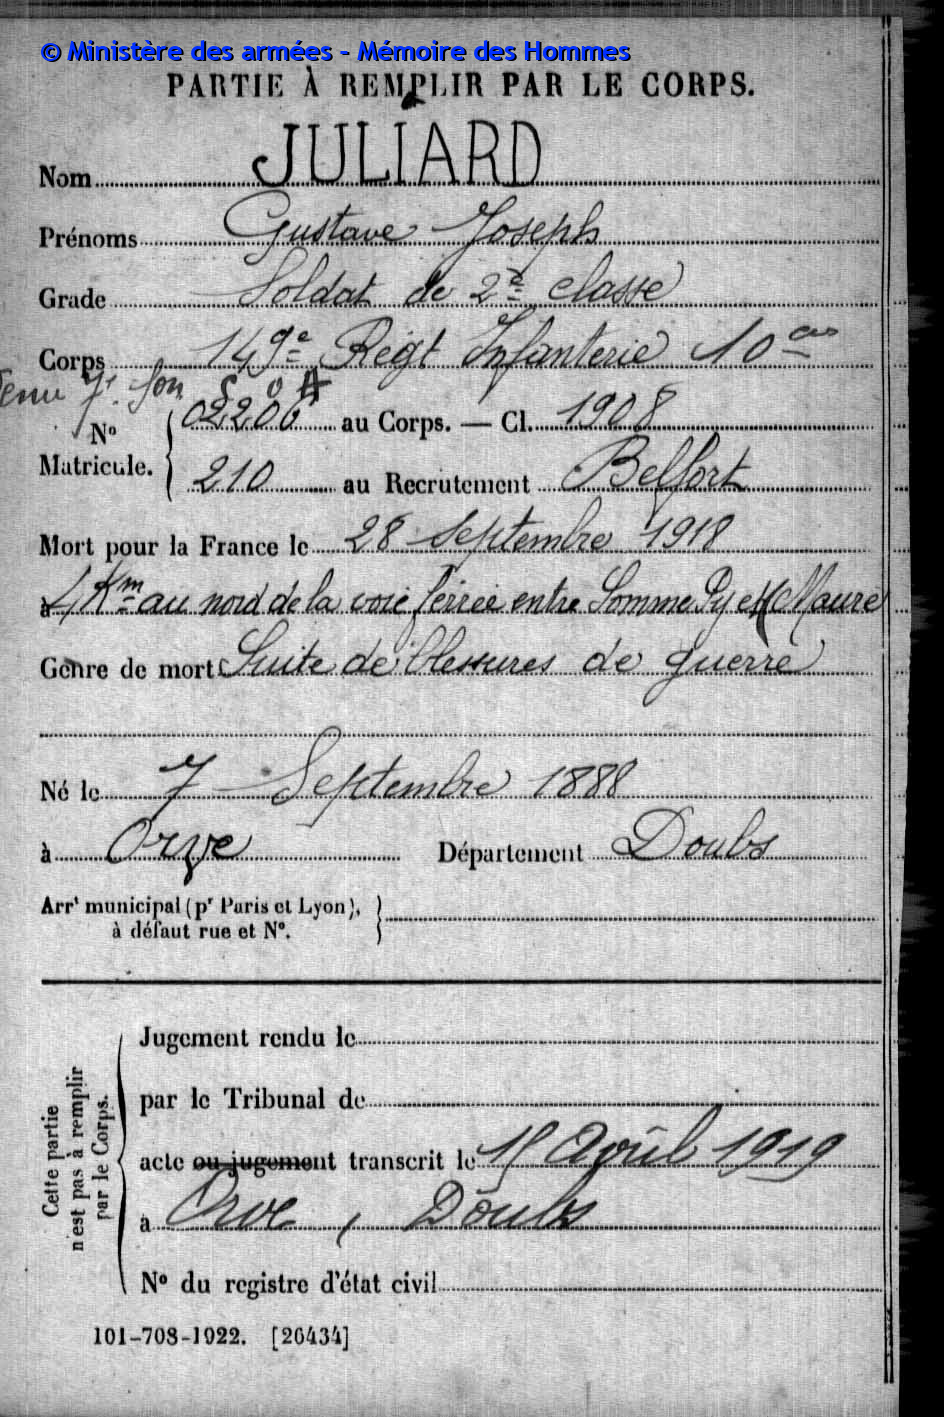 © Ministère des armées - Mémoire des Hommes
PARTIE À REMPLIR PAR LE CORPS.
Nom JULIARD
Prénoms Gustave Joseph
Grade Soldat de 2e classe
Corps 149e Régt Infanterie 10
No 02206 au Corps. — Cl. 1908
Matricule. 210 au Recrutement Belfort
Mort pour la France le 28 Septembre 1918
à 4 Km au nord de la voie ferrée entre Somme Py et Maure
Genre de mort Suite de blessures de guerre
Né le 7 Septembre 1888
à Orve Département Doubs
Arrt municipal (pr Paris et Lyon),
à défaut rue et No.
Cette partie
n'est pas à remplir
par le Corps.
Jugement rendu le
par le Tribunal de
acte ou jugement transcrit le 15 Avril 1919
à Orve, Doubs
No du registre d'état civil
101-708-1922. [26434]